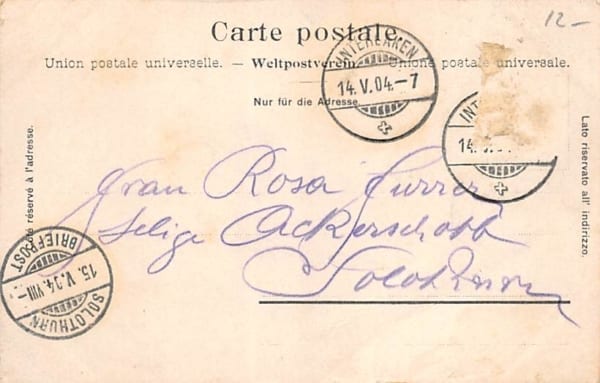 12-
Carte postale.
Union postale universelle. — Weltpostverein. — Unione postale universale.
Nur für die Adresse
INTERLAKEN
14.V.04.-7
INT
14.V.
Côté réservé à l'adresse.
Lato riservato all' indirizzo.
Frau Rosa Furrer
Selige Ackerschott
Solothurn
SOLOTHURN
15.V.04.VIII-
BRIEFPOST